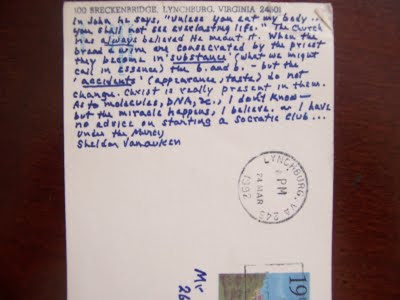 100 BRECKENBRIDGE, LYNCHBURG, VIRGINIA 24501
In John he says, "Unless you eat my body...
you shall not see everlasting life." The Church
has always believed He meant it. When the
bread & wine are consecrated by the priest
they become in "substance" (what we might
call in essence) the b. and b. – but the
"accidents" (appearance, taste) do not
change. Christ is really present in them.
As to molecules, DNA, &c., I don't know –
but the miracle happens, I believe. I have
no advice on starting a Socratic Club...
Under the Mercy
Sheldon Vanauken
LYNCHBURG, VA 245
PM
24 MAR
1987
19
Mr
26